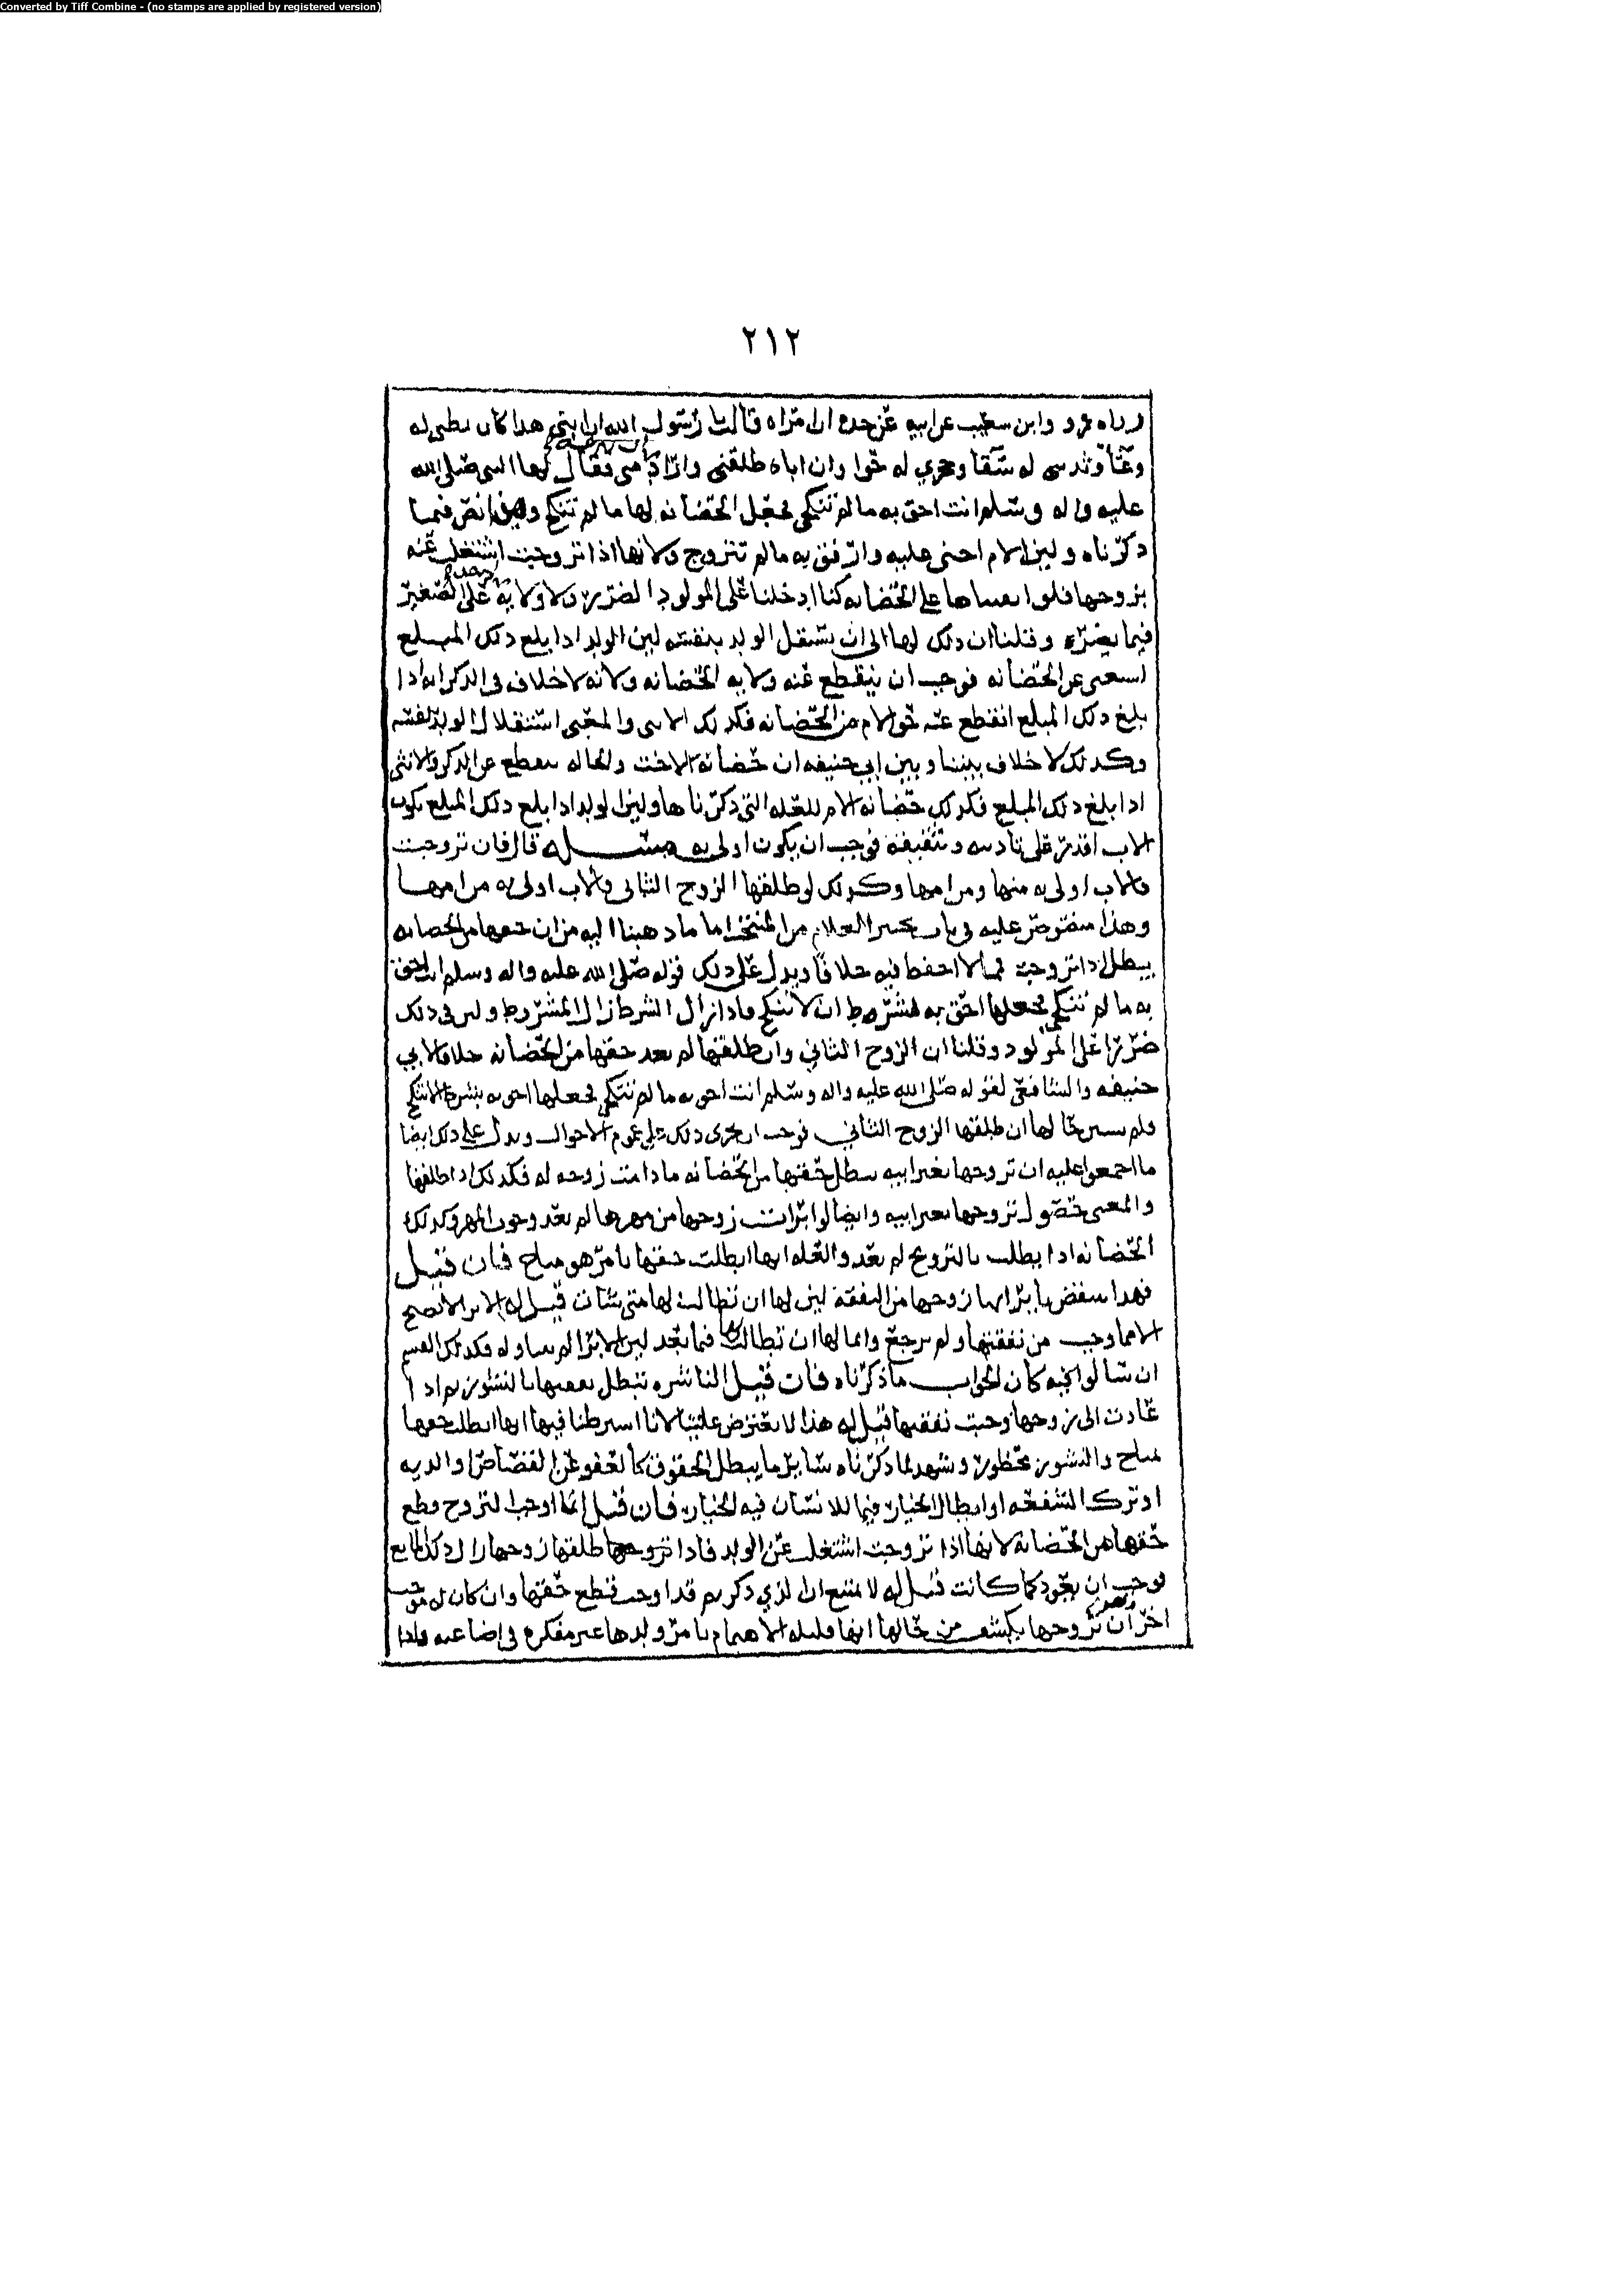 Converted by Tiff Combine - (no stamps are applied by registered version)
٢١٢
رواه عمرو وابن سعيب عن ابيه عن جده ان امراه قالت يا رسول الله ان ابني هدا كان بطني له
وعا وثديي له سقا وحجري له حوا وان اباه طلقني واراد مني فقال لها النبي صلى الله
عليه واله وسلم انت احق به ما لم تنكحي فجعل الحضانه لها ما لم تنكح وهذا نص فيما
ذكرناه ولين الام احنى عليه وارفق به ما لم تتزوج ولانها اذا تزوجت اشتغلت عنه
بزوجها فلو على الحضانه كنا ادخلنا على المولود الضرر ولا ولايه على الصغير
فيما يضره وقلنا ان دلك لها الى ان يستقل الولد بنفسه لين الولد ادا بلغ دلك المبلع
استغنى عن الحضانه فوجب ان ينقطع عنه ولايه الحضانه ولانه لا خلاف في الدكر انه ادا
بلغ دلك المبلع انقطع عنه حق الام من الحضانه فكدلك الانثى والمعنى استقلال الولد بنفسه
وكدلك لا خلاف بيننا وبين ابي حنيفه ان حضانة الاخت والخاله سقطع عن الدكر والانثى
ادا بلغ دلك المبلع فكدلك حضانه الام للعله التي دكرناها ولين الولد ادا بلع دلك المبلع يكون
الاب اقدر على تاديبه وتثقيفه فوجب ان يكون اولى به مسله قال فان تزوجت
فالاب اولى به منها ومن امها وكدلك لو طلقها الزوج الثاني فالاب اولى به من امها
وهذا منصوص عليه في باب من المنتخب اما ما دهبنا اليه من ان حقها من الحضانه
يبطل ادا تزوجت فما لا احفظ فيه خلافا ويدل على دلك قوله صلى الله عليه واله وسلم انت احق
به ما لم تنكحي فجعلها احق به بشرط ان لا تنكح فادا زال الشرط زال المشروط وليس في دلك
ضررا على المولود وقلنا ان الزوج الثاني وان طلقها لم يعد حقها من الحضانه خلافا لابي
حنيفه والشافعي لقوله صلى الله عليه واله وسلم انت احق به ما لم تنكحي فجعلها احق به بشرط الا تنكح
ولم حالها ان طلقها الزوج الثاني فوجب ان يجري دلك على عموم الاحوال ويدل على دلك ايضا
ما اجمعوا عليه ان تزوجها بغير ابيه يبطل حقها من الحضانه ما دامت زوجه له فكدلك ادا طلقها
والمعنى حصول تزوجها بغير ابيه وايضا لو ابرات زوجها من مهرها لم يعد وجوب المهر وكدلك
الحضانه ادا بطلت بالتزويج لم يعد والعله انها ابطلت حقها بامر هو مباح فان قيل
فهدا ينقض بابرائها زوجها من النفقه لين لها ان تطالب لها متى شات قيل له الابرا لا يصح
الا مما وجب من نفقتها ولم يرجع وانما لها ان تطالب فيما بعد لين الابرا لم يتناوله وكدلك القسم
ان سالوا عنه كان الجواب ما ذكرناه فان قيل الناشره تبطل نفقتها بالنشوز ثم ادا
عادت الى زوجها وجبت نفقتها قيل له هذا لا يعترض علينا لانا اشترطنا فيها انها ابطلت حقها
بمباح والنشوز محظور ويشهد لما ذكرناه ساير ما يبطل الحقوق كالعفو عن القصاص والديه
او ترك الشفعه او ابطال الخيار فيما للانسان فيه الخيار فان قيل انما اوجب التزوج قطع
حقها من الحضانه لانها اذا تزوجت اشتغلت عن الولد فادا طلقها زوجها زال دلك المانع
فوجب ان يعود كما كانت قيل له لا يمتنع ان الذي ذكرتم قد اوجب قطع حقها وان كان له موجب
اخر ان تزوجها يكشف من حالها انها قليله الاهتمام بامر ولدها غير مفكره في اضاعته فادا